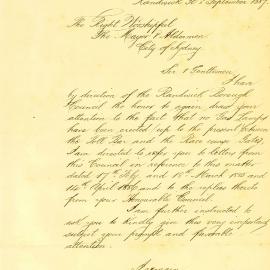 Randwick 30th September 1887.
The Right Worshipful
The Mayor & Aldermen
City of Sydney
Sir & Gentlemen
I have
by direction of the Randwick Borough
Council the honor to again draw your
attention to the fact that no Gas Lamps
have been erected up to the present between
the Toll Bar and the Race course Gates,
I am directed to refer you to letters from
this Council in reference to this matter
dated 17th Feby and 18th March 1885 and
14th April 1886 and to the replies thereto
from your Honourable Council.
I am further instructed to
ask you to kindly give this very important
subject your prompt and favorable
attention.